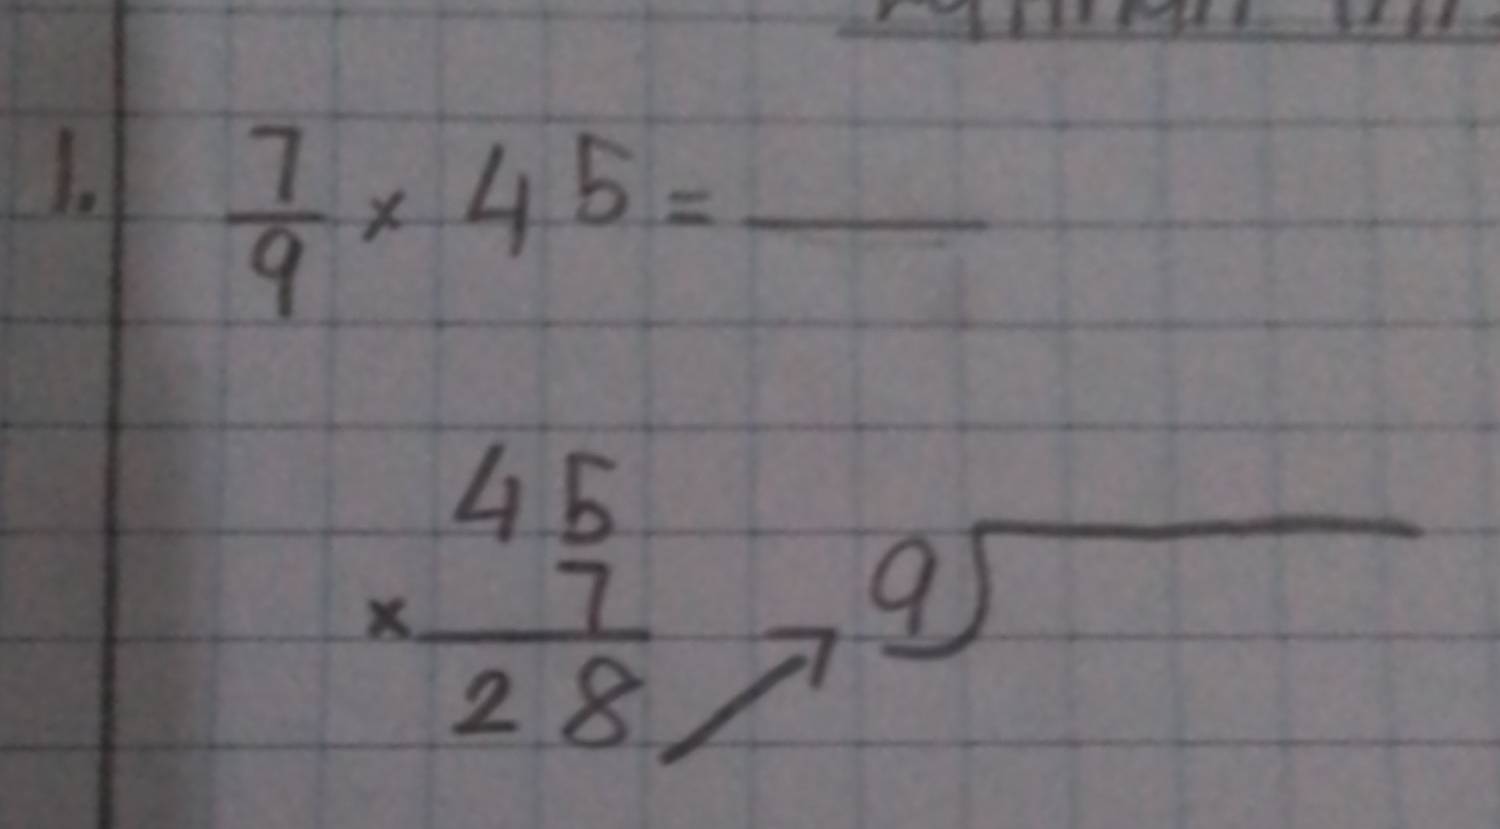 1. 7/9 × 45 = ____
45
× 7
28 → 9)